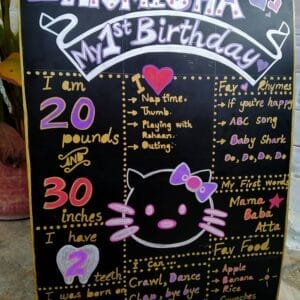 My 1st Birthday
I am
20
pounds
AND
30
inches
I have
2
teeth
I was born on
I ❤
→ Nap time.
→ Thumb.
→ Playing with
Rahaan.
→ Outing.
I can...
Crawl, Dance
Clap, bye bye
Fav Rhymes
→ If you're happy
→ ABC song
→ Baby Shark
Do, Do, Do, Do
My First Words
Mama
Baba
Atta
Fav Food
→ Apple
→ Banana
→ Rice